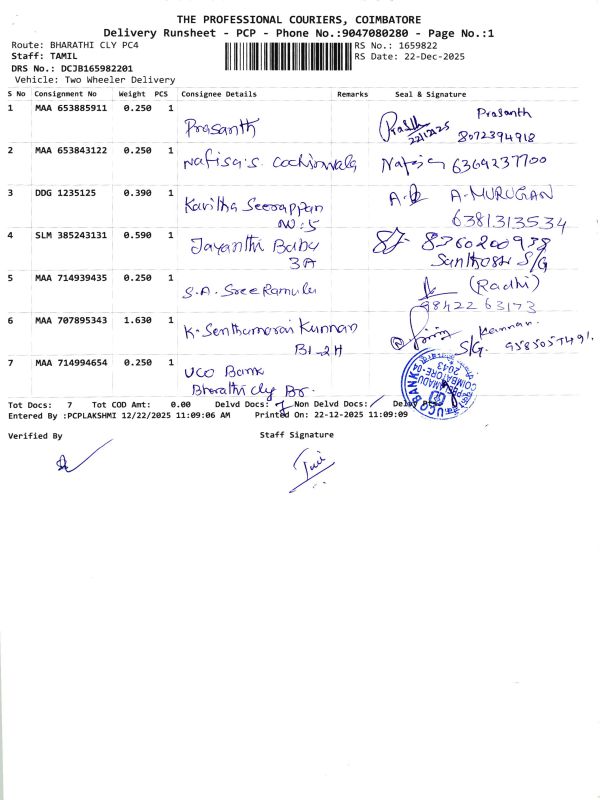 THE PROFESSIONAL COURIERS, COIMBATORE
Delivery Runsheet - PCP - Phone No.:9047080280 - Page No.:1
Route: BHARATHI CLY PC4 RS No.: 1659822
Staff: TAMIL RS Date: 22-Dec-2025
DRS No.: DCJB165982201
Vehicle: Two Wheeler Delivery
S No Consignment No Weight PCS Consignee Details Remarks Seal & Signature
1 MAA 653885911 0.250 1 Prasanth Prasanth
22/12/25 8072394918
2 MAA 653843122 0.250 1 Nafisa.S. Cochinwala 6369237700
3 DDG 1235125 0.390 1 Kavitha Seerappan A. MURUGAN
NO:5 6381313534
4 SLM 385243131 0.590 1 Jayanthi Babu 8360200938
3A Santhosh S/G
5 MAA 714939435 0.250 1 S.A. Sree Ramulu (Radhi)
98422 63173
6 MAA 707895343 1.630 1 K. Senthamarai Kannan Kannan.
B1-2H S/G. 9585057491.
7 MAA 714994654 0.250 1 UCO Bank
Bharathi cly Br.
UCO BANK
COIMBATORE-04
2043
Tot Docs: 7 Tot COD Amt: 0.00 Delvd Docs: 7 Non Delvd Docs:
Entered By :PCPLAKSHMI 12/22/2025 11:09:06 AM Printed On: 22-12-2025 11:09:09
Verified By Staff Signature